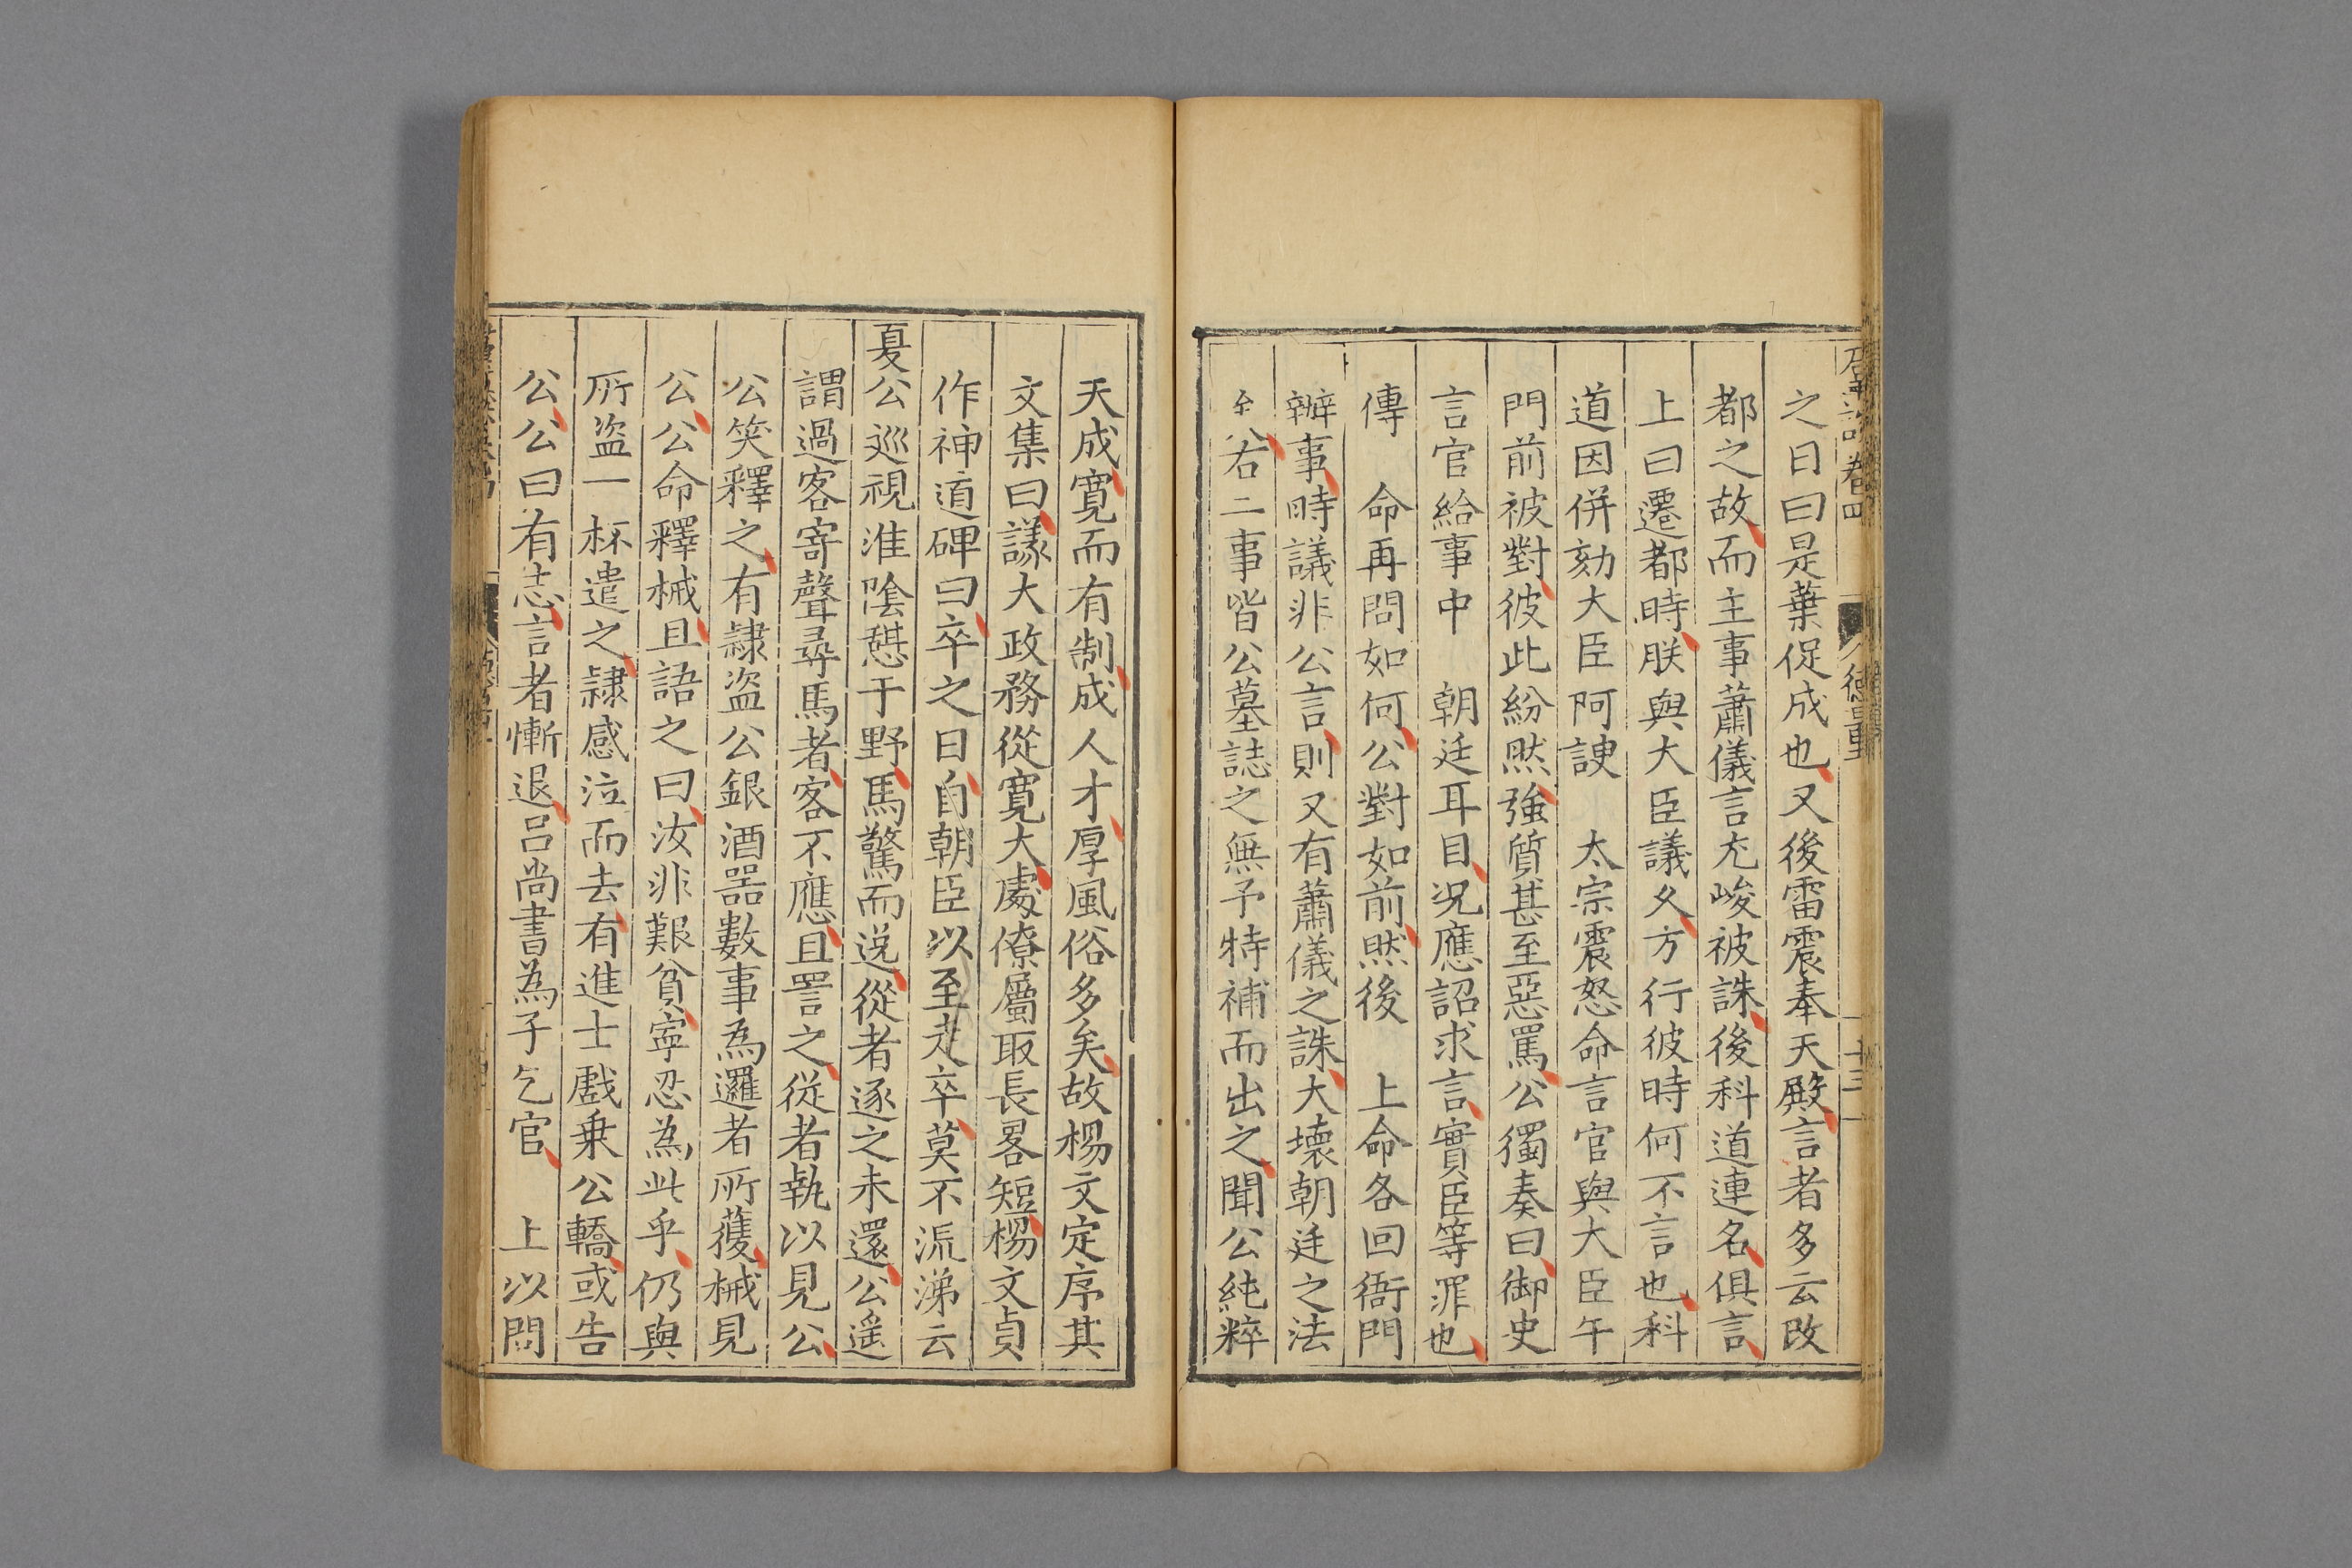 卷四
德量
十三
之日曰是葉促成也又後雷震奉天殿言者多云改
都之故而主事蕭儀言尤峻被誅後科道連名俱言
上曰遷都時朕與大臣議久方行彼時何不言也科
道因併劾大臣阿諛　太宗震怒命言官與大臣午
門前被對彼此紛然強質甚至惡罵公獨奏曰御史
言官給事中　朝廷耳目况應詔求言實臣等罪也
傳　命再問如何公對如前然後　上命各回衙門
辦事時議非公言則又有蕭儀之誅大壞朝廷之法
至公右二事皆公墓誌之無予特補而出之聞公純粹
天成寛而有制成人才厚風俗多矣故楊文定序其
文集曰議大政務從寛大處僚屬取長畧短楊文貞
作神道碑曰卒之日自朝臣以至走卒莫不流涕云
夏公巡視淮陰憇于野馬驚而逸從者逐之未還公遥
謂過客寄聲尋馬者客不應且詈之從者執以見公
公笑釋之有隷盗公銀酒噐數事為邏者所獲械見
公公命釋械且語之曰汝非艱貧寧忍為此乎仍與
所盗一杯遣之隷感泣而去有進士戲乗公轎或告
公公曰有志言者慚退吕尚書為子乞官　上以問